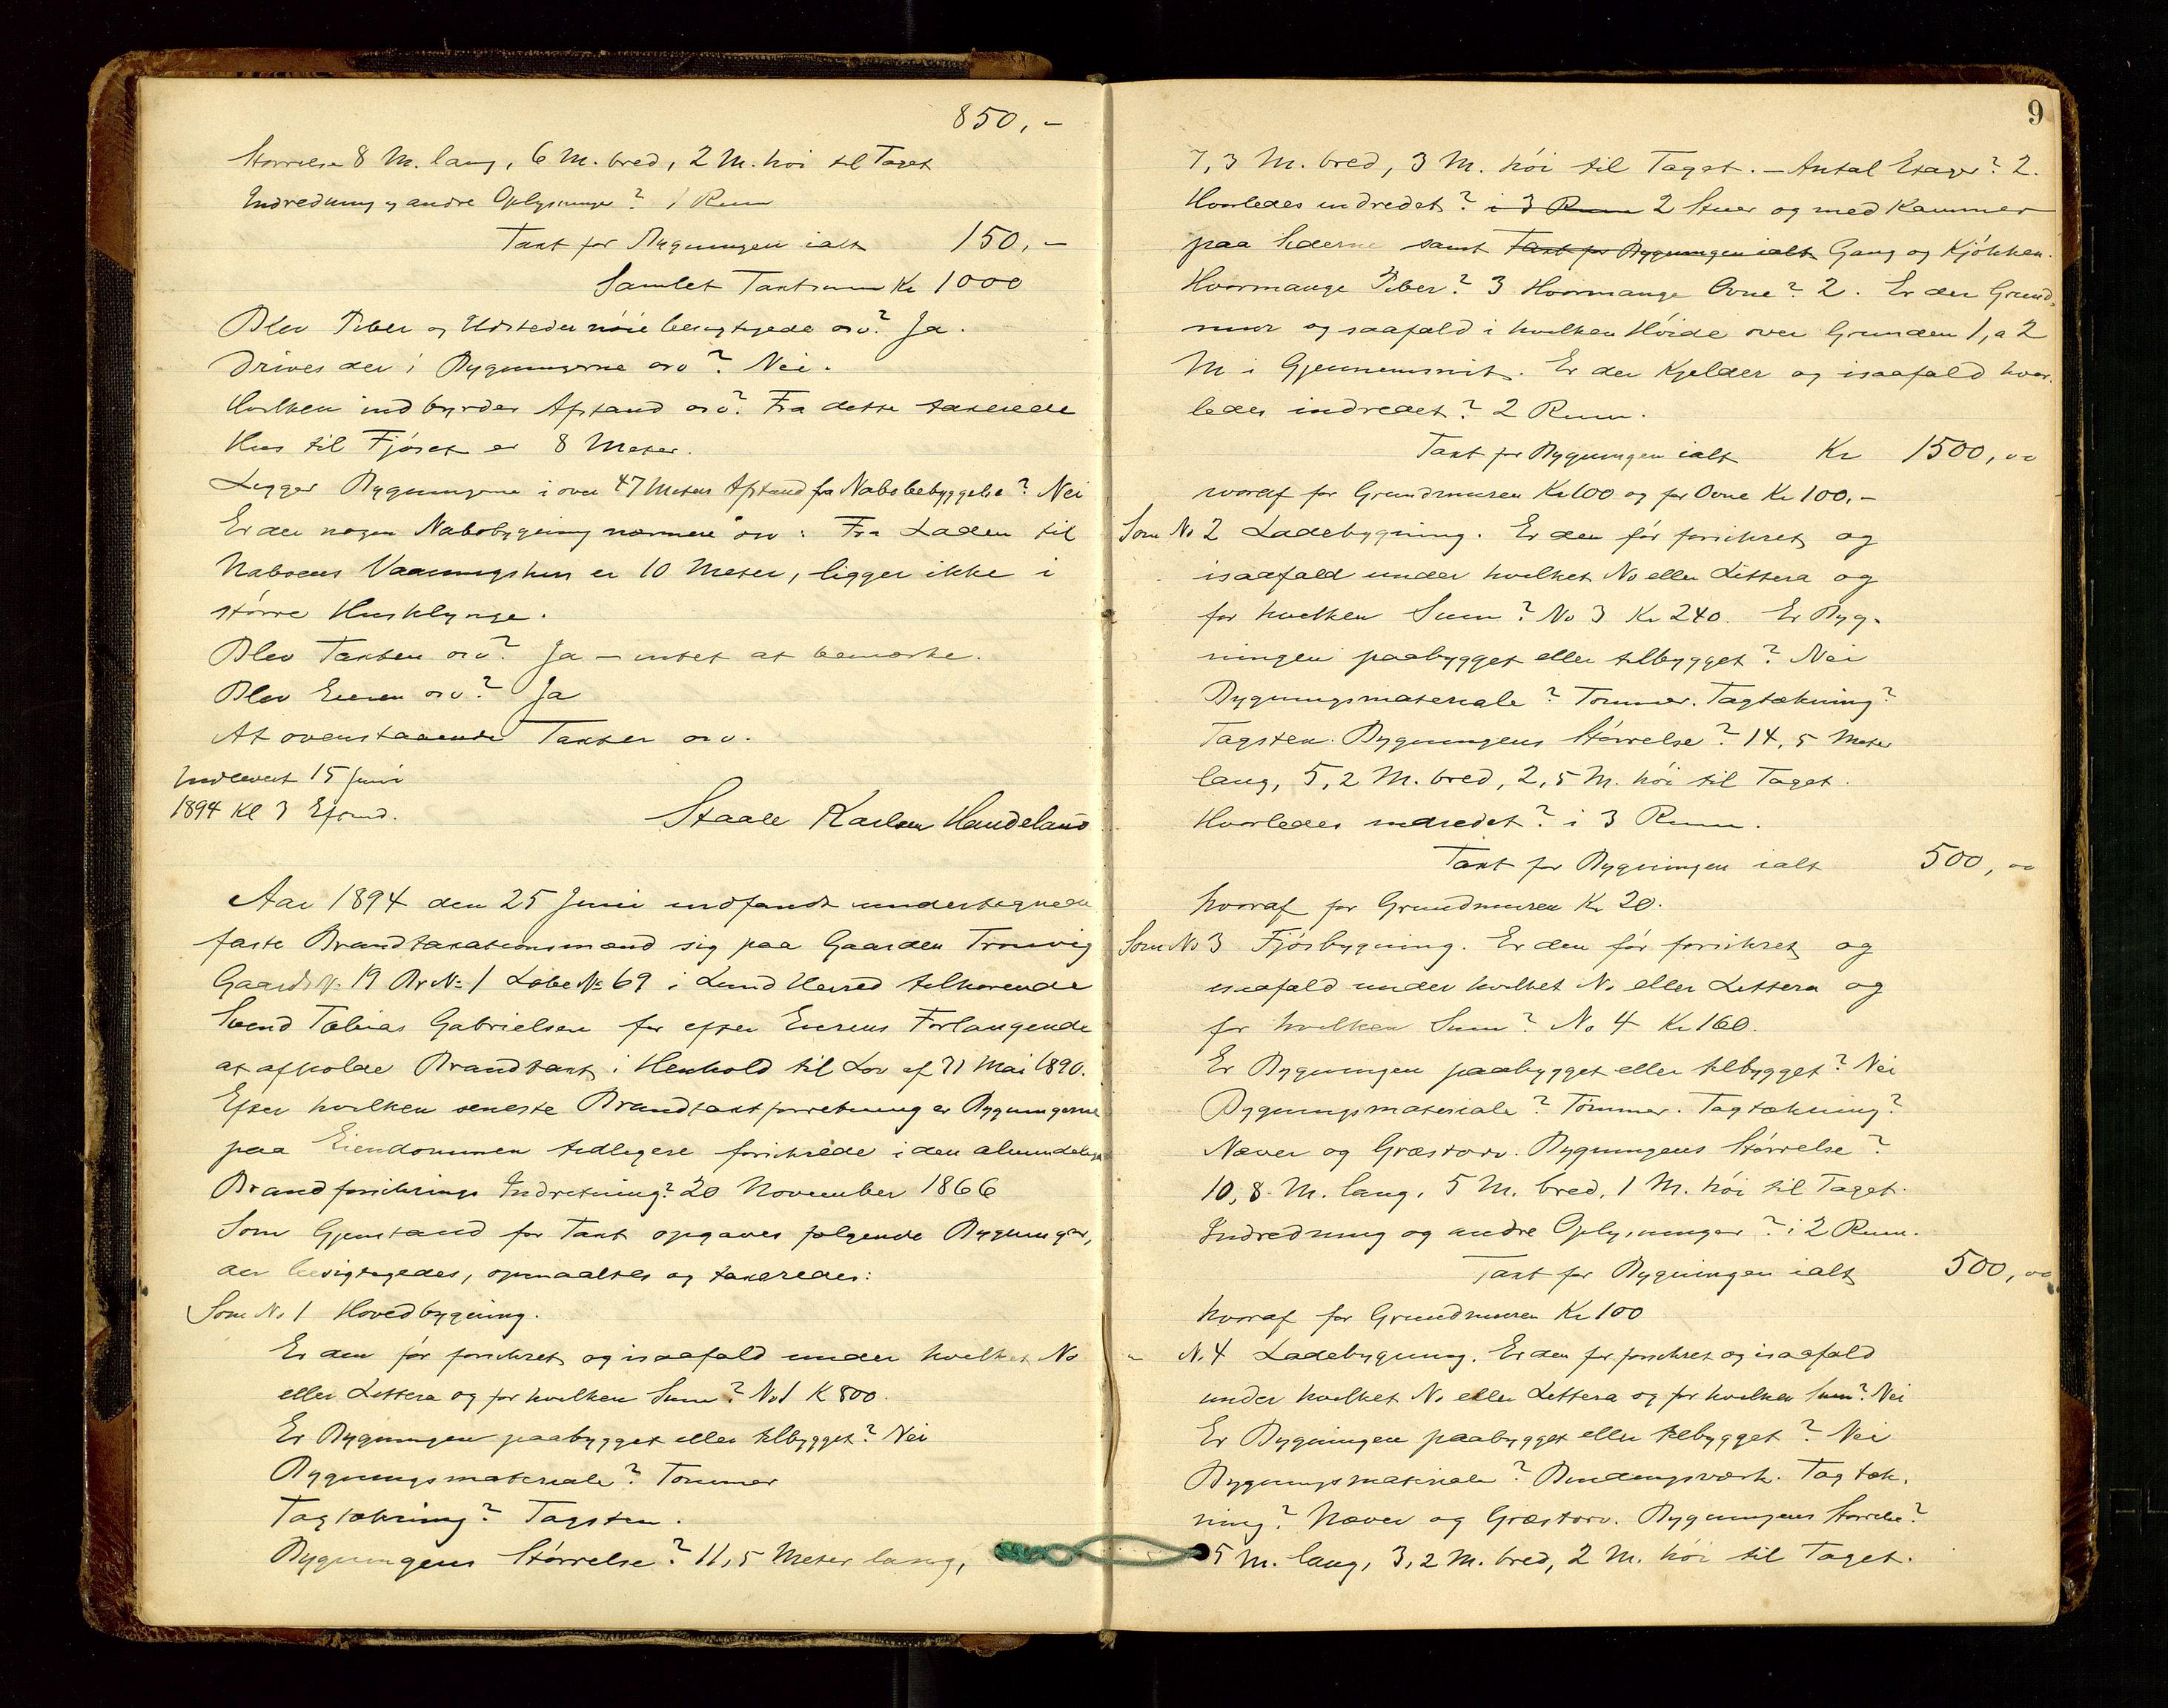 850,-
Størrelse 8 M. lang, 6 M. bred, 2 M. høi til Taget
Indredning og andre Oplysninger? 1 Rum
Taxt for Bygningen ialt 150,-
Samlet Taxtsum Kr 1000
Blev Piber og Ildsteder nøie besigtigede osv? Ja.
Drives der i Bygningerne osv? Nei.
Hvilken indbyrdes Afstand osv? Fra dette taxerede
Hus til Fjøset er 8 Meter.
Ligger Bygningerne i over 47 Meters Afstand fra Nabobebyggelse? Nei
Er der nogen Nabobygning nærmere osv: Fra Laden til
Naboens Vaaningshus er 10 Meter, ligger ikke i
større Husklynge.
Blev Taxten osv? Ja – intet at bemærke.
Blev Eieren osv? Ja
At ovenstaaende Taxter osv.
Indleveret 15 Juni
1894 Kl 3 Efmd.
Staale Karlsen Handeland
Aar 1894 den 25 Juni indfandt undertegnede
faste Brandtaxationsmænd sig paa Gaarden Tronvig
Gaards No 19 Br No 1 Løbe No 69 i Lund Herred tilhørende
Svend Tobias Gabrielsen for efter Eierens Forlangende
at afholde Brandtaxt i Henhold til Lov af 31 Mai 1890.
Efter hvilken seneste Brandtaxtforretning er Bygningerne
paa Eiendommen tidligere forsikrede i den almindelige
Brandforsikrings Indretning? 20 November 1866
Som Gjenstand for Taxt opgaves følgende Bygninger,
der besigtigedes, opmaaltes og taxeredes:
Som No 1 Hovedbygning.
Er den før forsikret og isaafald under hvilket No
eller Littera og for hvilken Sum? No 1 K 800.
Er Bygningen paabygget eller tilbygget? Nei
Bygningsmateriale? Tømmer
Tagtækning? Tagsten.
Bygningens Størrelse? 11,5 Meter lang,
9
7,3 M. bred, 3 M. høi til Taget. – Antal Etager? 2.
Hvorledes indredet? i 3 Rum 2 Stuer og med Kammer
paa Siderne samt Taxt for Bygningen ialt Gang og Kjøkken.
Hvormange Piber? 3 Hvormange Ovne? 2. Er der Grund-
mur og isaafald i hvilken Høide over Grunden 1, a 2
M i Gjennemsnit. Er der Kjelder og isaafald hvor-
ledes indredet? 2 Rum.
Taxt for Bygningen ialt Kr 1500,00
hvoraf for Grundmuren Kr 100 og for Ovne Kr 100,-
Som No 2 Ladebygning. Er den før forsikret og
isaafald under hvilket No eller Littera og
for hvilken Sum? No 3 Kr 240. Er Byg-
ningen paabygget eller tilbygget? Nei
Bygningsmateriale? Tømmer. Tagtækning?
Tagsten. Bygningens Størrelse? 14,5 Meter
lang, 5,2 M. bred, 2,5 M. høi til Taget.
Hvorledes indredet? i 3 Rum.
Taxt for Bygningen ialt 500,00
hvoraf for Grundmuren Kr 20.
Som No 3 Fjøsbygning. Er den før forsikret og
isaafald under hvilket No eller Littera og
for hvilken Sum? No 4 Kr 160.
Er Bygningen paabygget eller tilbygget? Nei
Bygningsmateriale? Tømmer. Tagtækning?
Næver og Græstorv. Bygningens Størrelse?
10,8 M. lang, 5 M. bred, 1 M. høi til Taget.
Indredning og andre Oplysninger? i 2 Rum.
Taxt for Bygningen ialt 500,00
hvoraf for Grundmuren Kr 100
" No 4 Ladebygning. Er den før forsikret og isaafald
under hvilket No eller Littera og for hvilken Sum? Nei
Er Bygningen paabygget eller tilbygget? Nei
Bygningsmateriale? Bindingsværk. Tagtæk-
ning? Næver og Græstorv. Bygningens Størrelse?
5 M. lang, 3,2 M. bred, 2 M. høi til Taget.